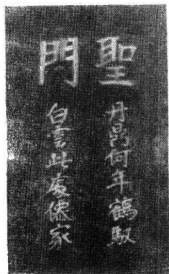 聖門
丹鼎何年鶴馭
白雲此處僊家